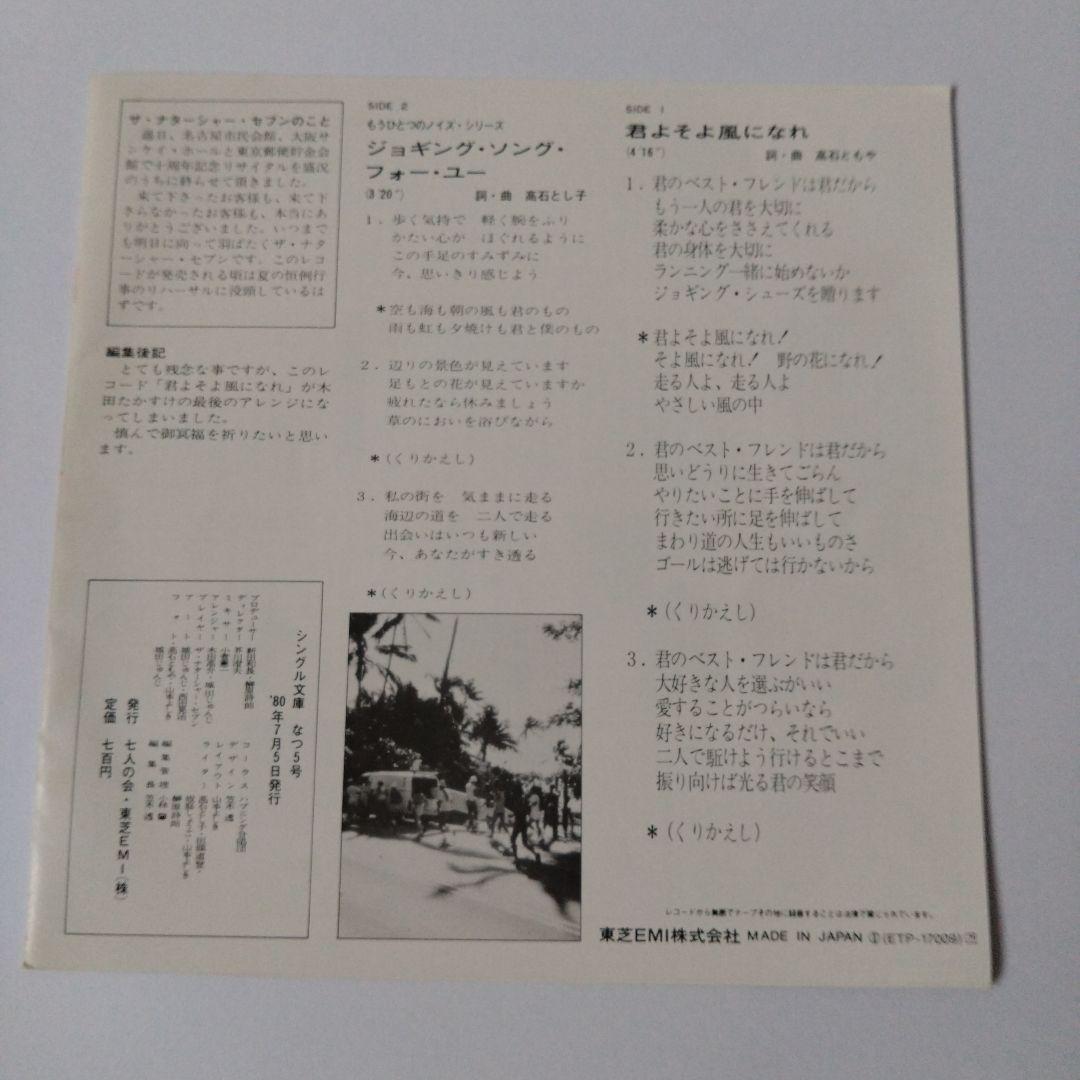 SIDE 1
君よそよ風になれ
(4′16″) 詞・曲 高石ともや
1．君のベスト・フレンドは君だから
もう一人の君を大切に
柔かな心をささえてくれる
君の身体を大切に
ランニング一緒に始めないか
ジョギング・シューズを贈ります
＊君よそよ風になれ！
そよ風になれ！ 野の花になれ！
走る人よ、走る人よ
やさしい風の中
2．君のベスト・フレンドは君だから
思いどうりに生きてごらん
やりたいことに手を伸ばして
行きたい所に足を伸ばして
まわり道の人生もいいものさ
ゴールは逃げては行かないから
＊(くりかえし)
3．君のベスト・フレンドは君だから
大好きな人を選ぶがいい
愛することがつらいなら
好きになるだけ、それでいい
二人で駈けよう行けるとこまで
振り向けば光る君の笑顔
＊(くりかえし)
SIDE 2
もうひとつのノイズ・シリーズ
ジョギング・ソング・
フォー・ユー
(3′20″) 詞・曲 高石とし子
1．歩く気持で 軽く腕をふり
かたい心が ほぐれるように
この手足のすみずみに
今、思いきり感じよう
＊空も海も朝の風も君のもの
雨も虹も夕焼けも君と僕のもの
2．辺りの景色が見えています
足もとの花が見えていますか
疲れたなら休みましょう
草のにおいを浴びながら
＊(くりかえし)
3．私の街を 気ままに走る
海辺の道を 二人で走る
出会いはいつも新しい
今、あなたがすき透る
＊(くりかえし)
ザ・ナターシャー・セブンのこと
過日、名古屋市民会館、大阪サ
ンケイ・ホールと東京郵便貯金会
館で十周年記念リサイタルを盛況
のうちに終らせて頂きました。
来て下さったお客様も、来て下
さらなかったお客様も、本当にあ
りがとうございました。いつまで
も明日に向って羽ばたくザ・ナタ
ーシャー・セブンです。このレコ
ードが発売される頃は夏の恒例行
事のリハーサルに没頭しているは
ずです。
編集後記
とても残念な事ですが、このレ
コード「君よそよ風になれ」が木
田たかすけの最後のアレンジにな
ってしまいました。
慎んで御冥福を祈りたいと思い
ます。
シングル文庫 なつ5号
'80年7月5日発行
プロデューサー
ディレクター
ミキサー
アレンジャー
プレイヤー ザ・ナターシャー・セブン
アート
フォト
コーラス
デザイン 笠木透
レイアウト
ライター
編集長 笠木透
発行 七人の会・東芝EMI(株)
定価 七百円
レコードから無断でテープその他に録音することは法律で禁じられています。
東芝EMI株式会社 MADE IN JAPAN Ⓘ(ETP-17009)